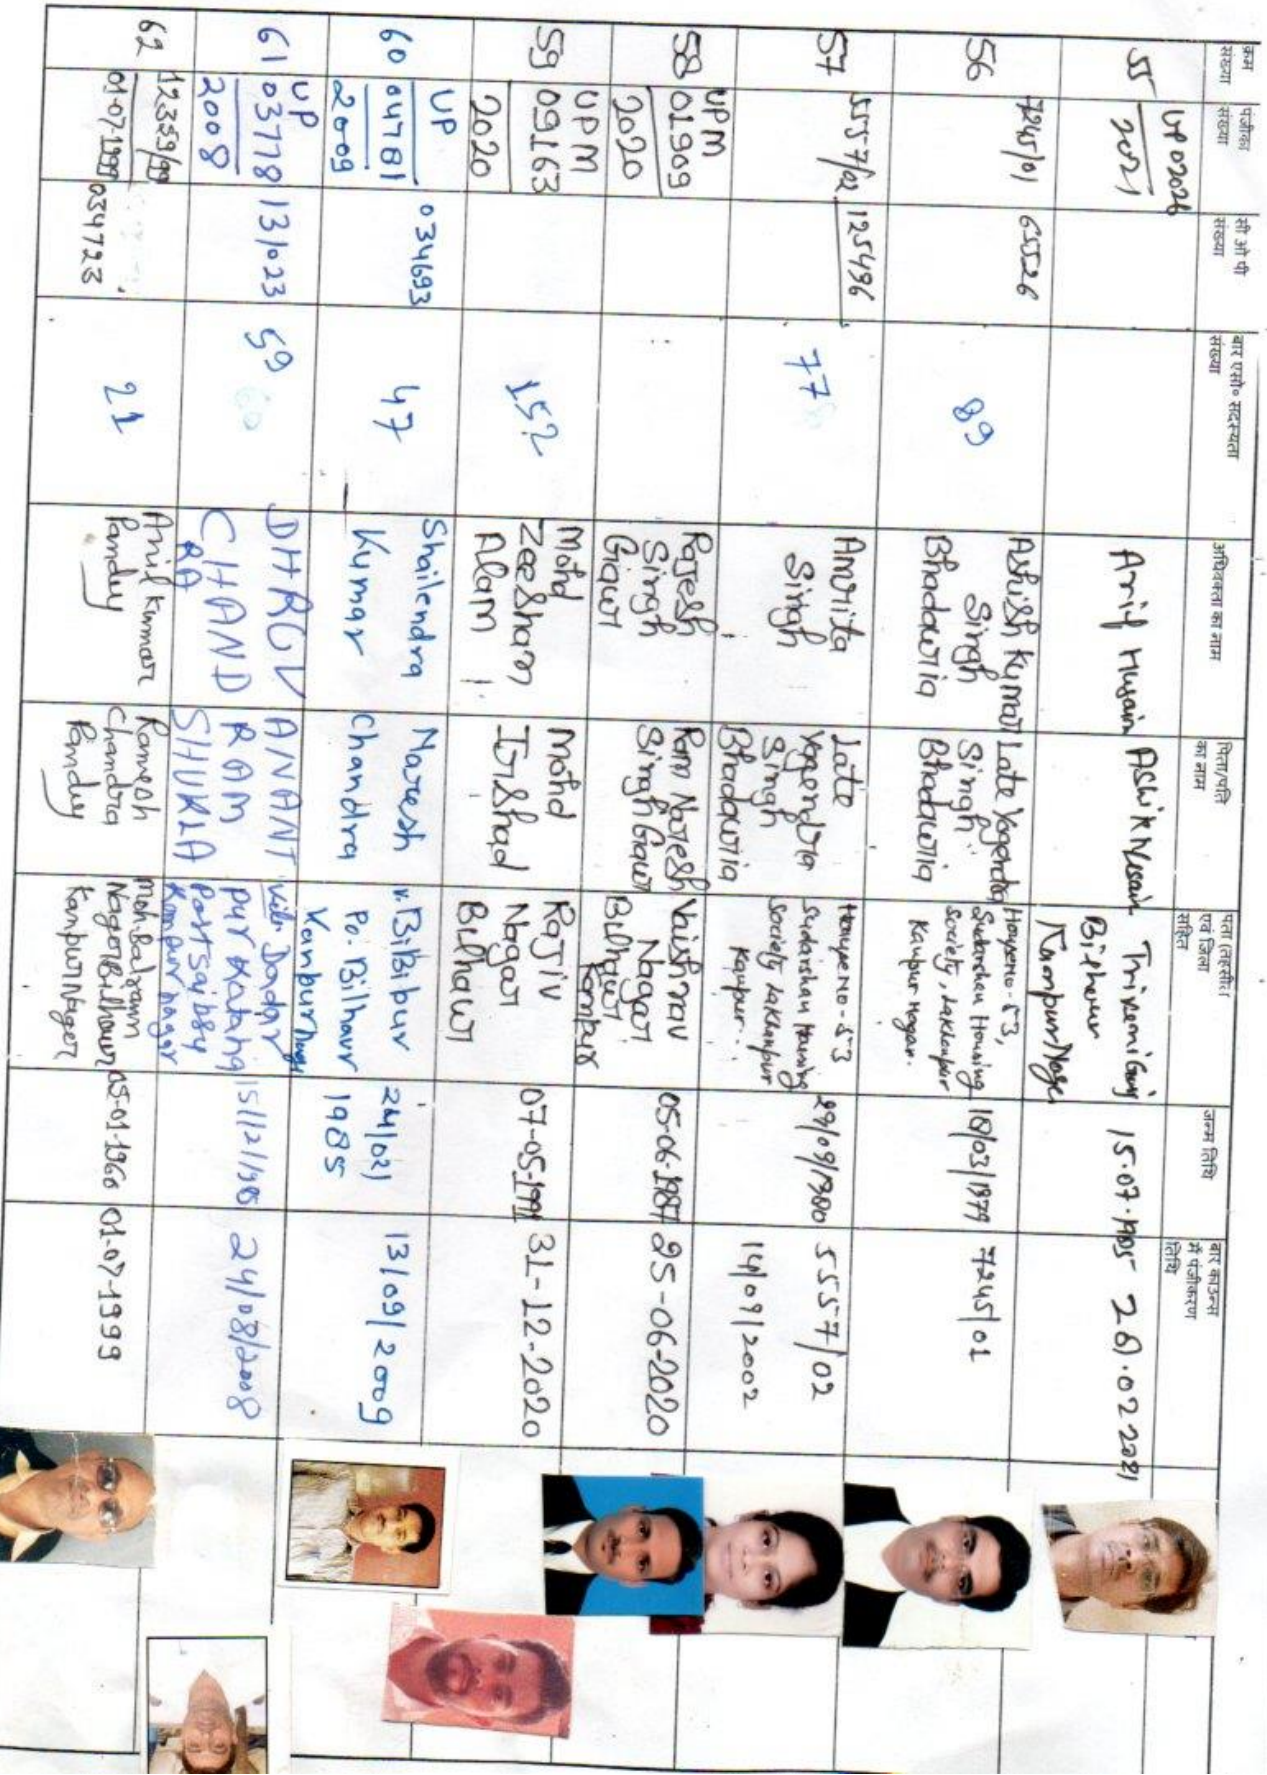 क्रम संख्या
पंजीकरण संख्या
सी ओ पी संख्या
बार एसो० सदस्यता संख्या
अधिवक्ता का नाम
पिता/पति का नाम
पता (तहसील एवं जिला सहित
जन्म तिथि
बार काउन्स में पंजीकरण तिथि
55
UP 02026
2021
Arif Husain
Ashik Husain
Triveni Ganj
Bilhaur
Kanpur Nagar
15.07.1985
26.02.2021
56
7245/01
65526
89
Ashish Kumar
Singh
Bhadauria
Late Yogendra
Singh
Bhadauria
House no-53,
Sudarshan Housing
Society, Lakhanpur
Kanpur Nagar.
18/03/1979
7245/01
57
5557/02
125496
77
Amrita
Singh
Late
Yogendra
Singh
Bhadauria
House No-53
Sudarshan Housing
Society Lakhanpur
Kanpur.
29/09/1980
5557/02
14/09/2002
58
UPM
01909
2020
Rajesh
Singh
Gaur
Ram Naresh
Singh Gaur
Vaishnav
Nagar
Bilhaur
Kanpur
05-06-1987
25-06-2020
59
UPM
09163
2020
152
Mohd
Zeeshan
Alam
Mohd
Irshad
Rajiv
Nagar
Bilhaur
07-05-1991
31-12-2020
60
UP
04781
2009
034693
47
Shailendra
Kumar
Naresh
Chandra
v. Bilbipur
Po. Bilhaur
Kanpur Nagar
24/02/
1985
13/09/2009
61
UP
03778
2008
131023
59
60
DHRGV
CHAND
RA
ANANT
RAM
SHUKLA
Vill- Dadar
pur Katah
Post saibsy
Kanpur nagar
24/08/2008
62
12359/99
01-07-1999
034723
21
Anil Kumar
Pandey
Ramesh
Chandra
Pandey
Moh-Balram
Nagar Bilhaur
Kanpur Nagar
05-01-1966
01-07-1999